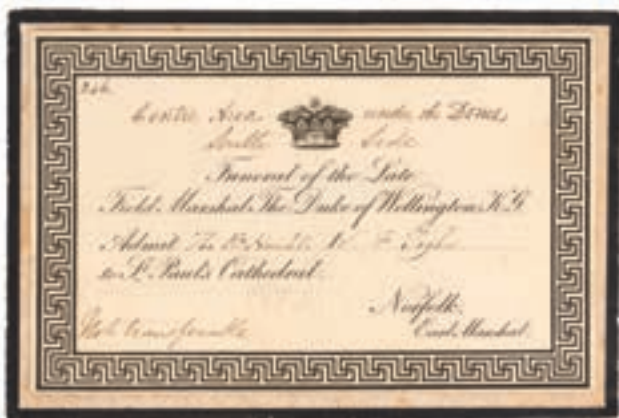 Centre Area under the Dome,
South Side
Funeral of the Late
Field Marshal The Duke of Wellington K.G.
Admit The
to St. Paul's Cathedral.
Norfolk.
Not transferable
Earl Marshal.